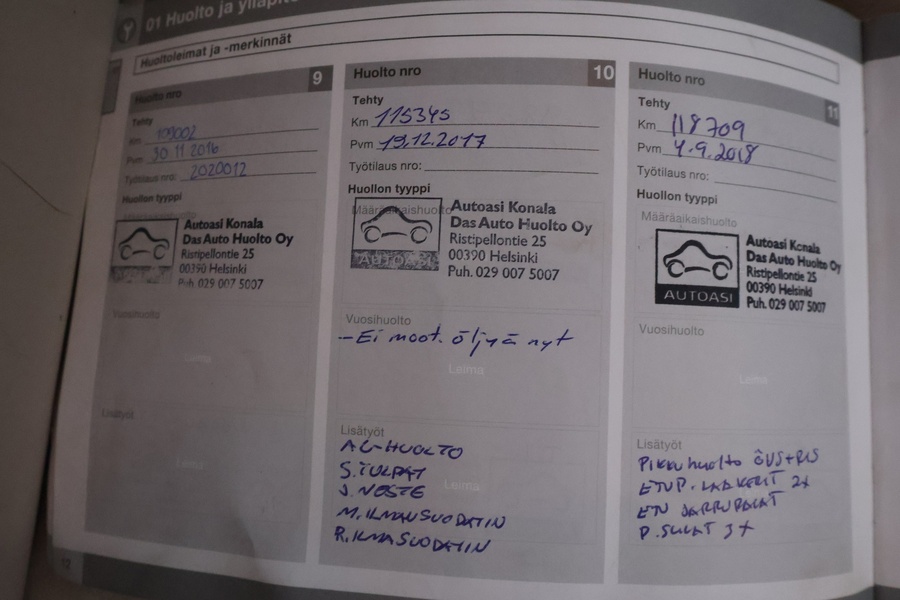 01 Huolto ja
Huoltoleimat ja -merkinnät
Huolto nro 9
Tehty
Km
Pvm 30.11.2016
Työtilaus nro: 2020012
Huollon tyyppi
Autoasi Konala
Das Auto Huolto Oy
Ristipellontie 25
00390 Helsinki
Puh. 029 007 5007
Vuosihuolto
Leima
Lisätyöt
Leima
12
Huolto nro 10
Tehty
Km 115345
Pvm 19.12.2017
Työtilaus nro:
Huollon tyyppi
Määräaikaishuolto
AUTOASI
Autoasi Konala
Das Auto Huolto Oy
Ristipellontie 25
00390 Helsinki
Puh. 029 007 5007
Vuosihuolto
- Ei moot. öljyä nyt
Leima
Lisätyöt
AC-HUOLTO
S.TULPAT
J.NESTE
Leima
M.ILMANSUODATIN
R.ILMASUODATIN
Huolto nro 11
Tehty
Km 118709
Pvm 4.9.2018
Työtilaus nro:
Huollon tyyppi
Määräaikaishuolto
AUTOASI
Autoasi Konala
Das Auto Huolto Oy
Ristipellontie 25
00390 Helsinki
Puh. 029 007 5007
Vuosihuolto
Leima
Lisätyöt
Pikkuhuolto
ETUP. LAAKERIT 2x
ETU JARRUPALAT
P.SULAT 3x